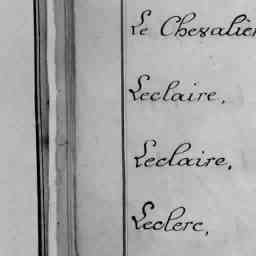 Le Chevalier
Leclaire.
Leclaire.
Leclerc.